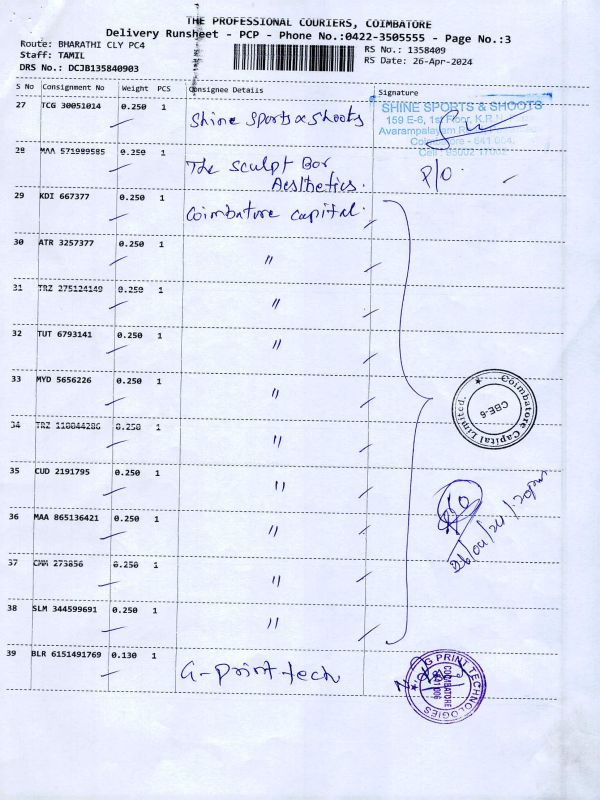 THE PROFESSIONAL COURIERS, COIMBATORE
Delivery Runsheet - PCP - Phone No.:0422-3505555 - Page No.:3
Route: BHARATHI CLY PC4
Staff: TAMIL
DRS No.: DCJB135840903
RS No.: 1358409
RS Date: 26-Apr-2024
S No Consignment No Weight PCS Consignee Details Signature
27 TCG 30051014 0.250 1 Shine Sports & Shoots
SHINE SPORTS & SHOOTS
159 E-6, 1st Floor, K.R.N
Avarampalayam
Coimbatore - 641 004.
28 MAA 571989585 0.250 1 The Sculpt Bar
Aesthetics. P/O.
29 KDI 667377 0.250 1 Coimbatore capital.
30 ATR 3257377 0.250 1 〃
31 TRZ 275124149 0.250 1 〃
32 TUT 6793141 0.250 1 〃
33 MYD 5656226 0.250 1 〃
Coimbatore Capital Limited.
CBE-6
34 TRZ 118044286 0.250 1 〃
35 CUD 2191795 0.250 1 〃
36 MAA 865136421 0.250 1 〃
26/04/24
37 CMM 273856 0.250 1 〃
38 SLM 344599691 0.250 1 〃
39 BLR 6151491769 0.130 1 G-print tech
G PRINT TECHNOLOGIES
COIMBATORE